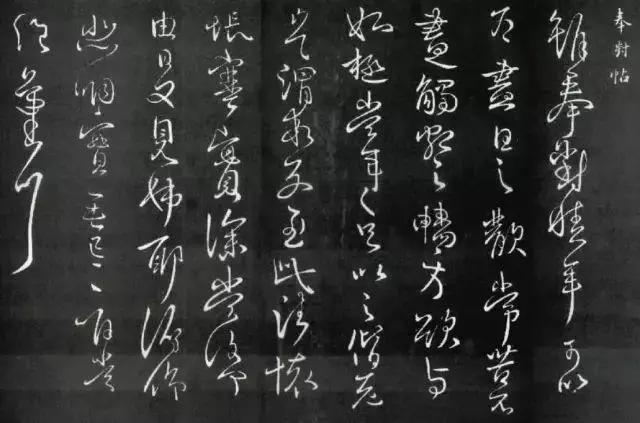 奉對帖
雖奉對積年可以
為盡日之歡常苦不
盡觸類之暢方欲與
姊極當年之匹以之偕老
豈謂乖別至此諸懷
悵塞實深當復何
由日夕見姊耶俯仰
悲咽實無已已惟當
絕氣耳